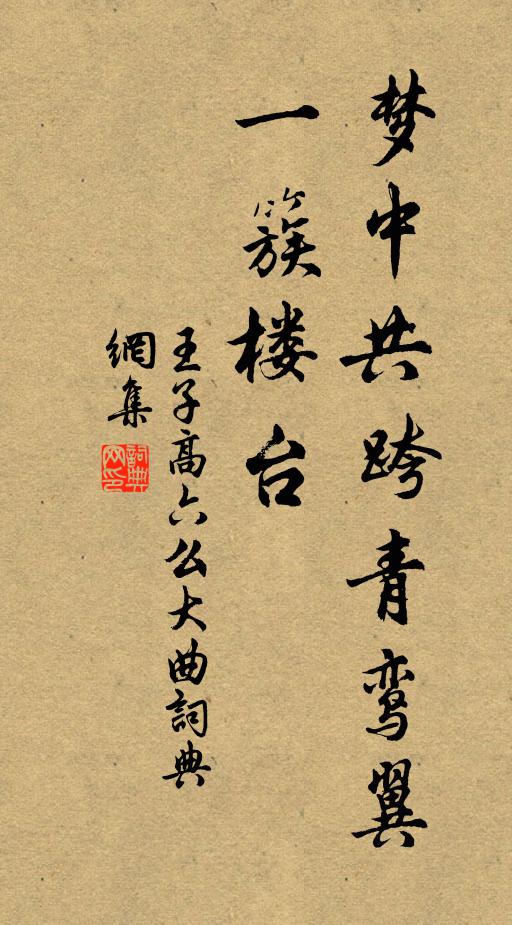 梦中共跨青鸾翼
一簇楼台
王子高六么大曲詞典
網集
詞典网印